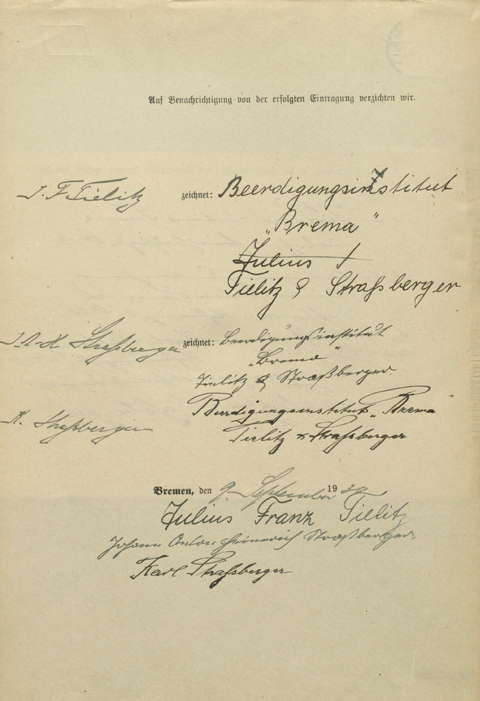 Auf Benachrichtigung von der erfolgten Eintragung verzichten wir.
J. F. Tielitz zeichnet: Beerdigungsinstitut
„Brema"
Julius
Tielitz & Straßberger
J. A. H. Straßberger zeichnet: Beerdigungsinstitut
„Brema"
Tielitz & Straßberger
Beerdigungsinstitut „Brema"
K. Straßberger Tielitz & Straßberger
Bremen, den 9. September 19
Julius Franz Tielitz
Johann Anton Heinrich Straßberger
Karl Straßberger